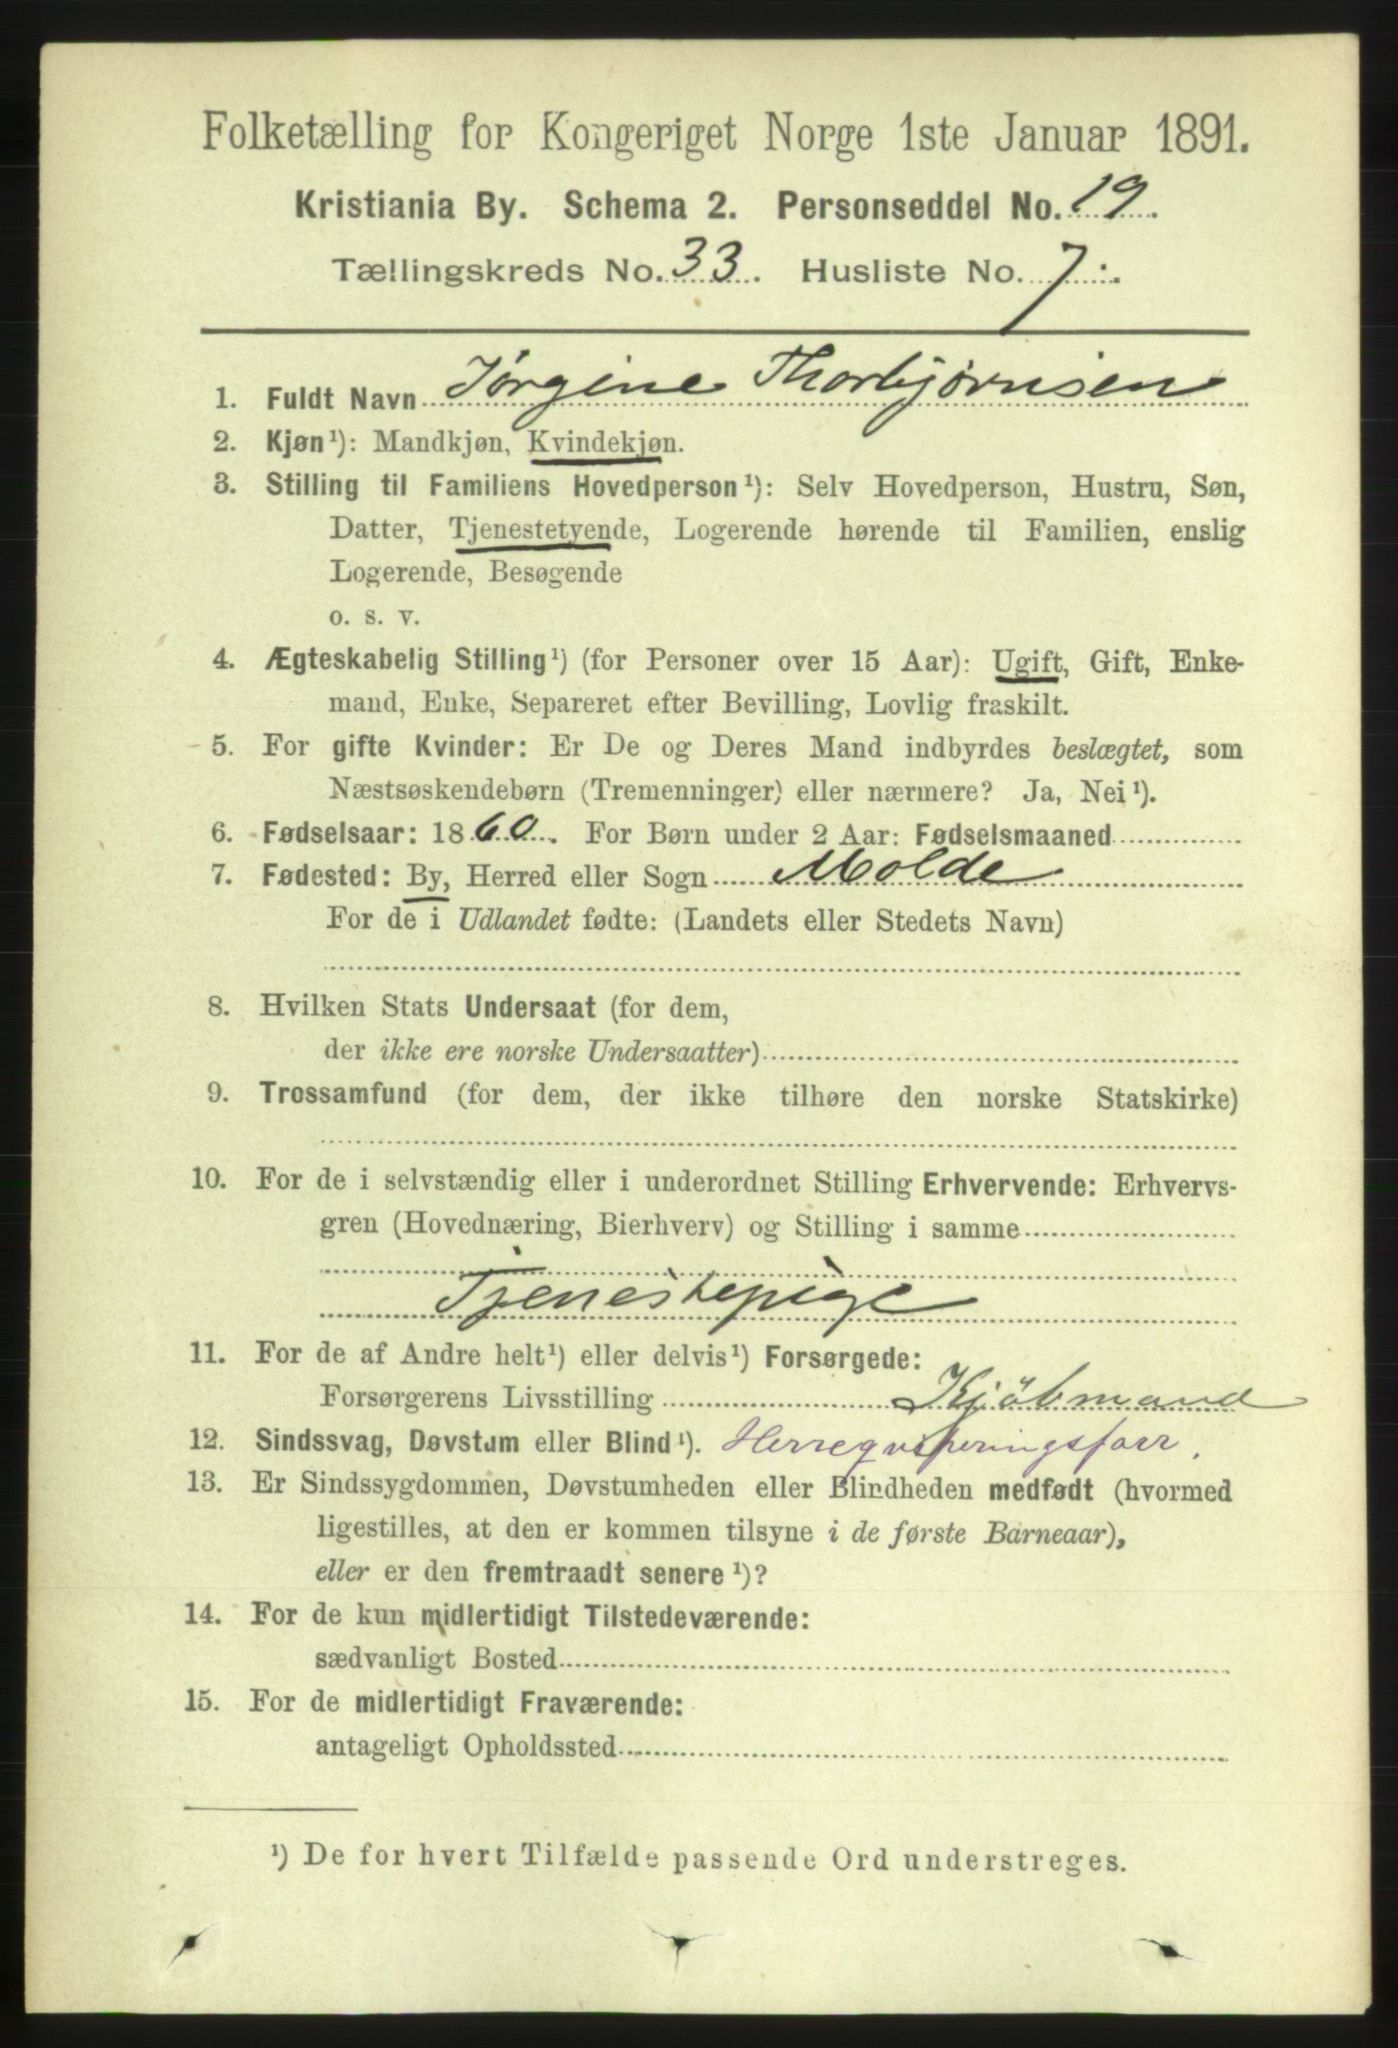 Folketælling for Kongeriget Norge 1ste Januar 1891.
Kristiania By. Schema 2. Personseddel No. 19.
Tællingskreds No. 33. Husliste No. 7.
1. Fuldt Navn Jørgine Thorbjørnsen
2. Kjøn¹): Mandkjøn, Kvindekjøn.
3. Stilling til Familiens Hovedperson¹): Selv Hovedperson, Hustru, Søn,
Datter, Tjenestetyende, Logerende hørende til Familien, enslig
Logerende, Besøgende
o. s. v.
4. Ægteskabelig Stilling¹) (for Personer over 15 Aar): Ugift, Gift, Enke-
mand, Enke, Separeret efter Bevilling, Lovlig fraskilt.
5. For gifte Kvinder: Er De og Deres Mand indbyrdes beslægtet, som
Næstsøskendebørn (Tremenninger) eller nærmere? Ja, Nei¹).
6. Fødselsaar: 1860. For Børn under 2 Aar: Fødselsmaaned
7. Fødested: By, Herred eller Sogn Molde
For de i Udlandet fødte: (Landets eller Stedets Navn)
8. Hvilken Stats Undersaat (for dem,
der ikke ere norske Undersaatter)
9. Trossamfund (for dem, der ikke tilhøre den norske Statskirke)
10. For de i selvstændig eller i underordnet Stilling Erhvervende: Erhvervs-
gren (Hovednæring, Bierhverv) og Stilling i samme
Tjenestepige
11. For de af Andre helt¹) eller delvis¹) Forsørgede:
Forsørgerens Livsstilling Kjøbmand
12. Sindssvag, Døvstum eller Blind¹). Herreqviperingsforr.
13. Er Sindssygdommen, Døvstumheden eller Blindheden medfødt (hvormed
ligestilles, at den er kommen tilsyne i de første Barneaar),
eller er den fremtraadt senere¹)?
14. For de kun midlertidigt Tilstedeværende:
sædvanligt Bosted
15. For de midlertidigt Fraværende:
antageligt Opholdssted
¹) De for hvert Tilfælde passende Ord understreges.